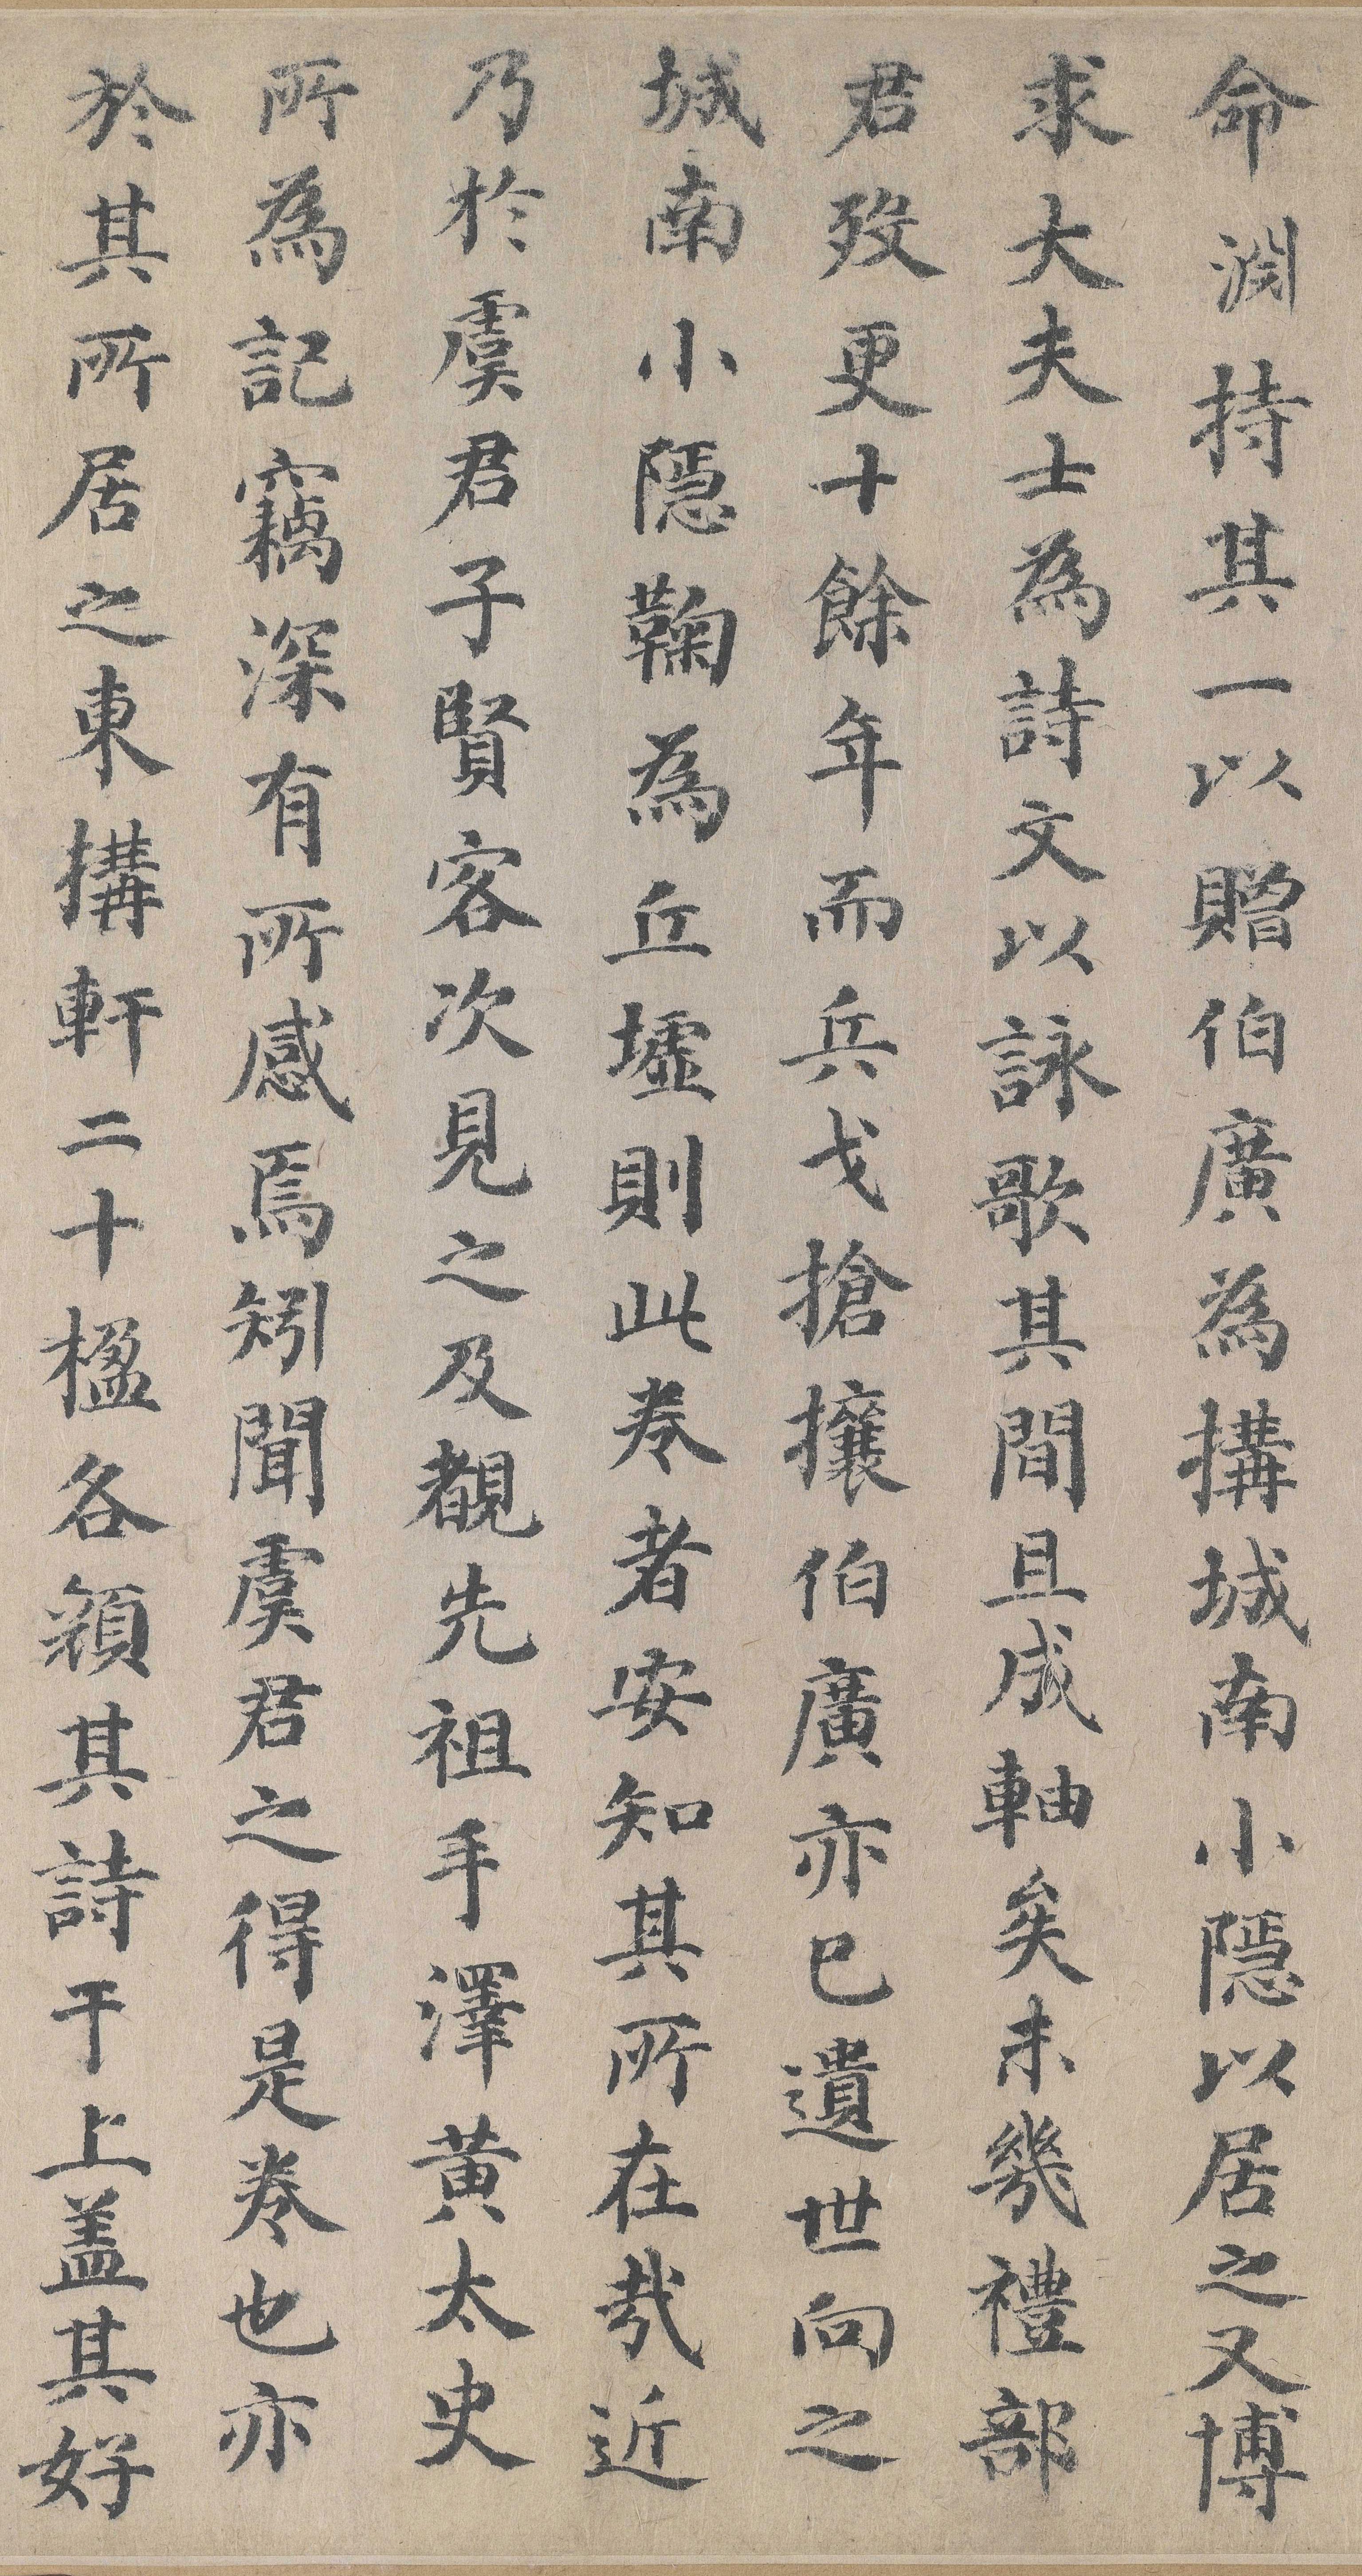 命淵持其一以贈伯廣為搆城南小隱以居之又博
求大夫士為詩文以詠歌其間且成軸矣未幾禮部
君歿更十餘年而兵戈搶攘伯廣亦已遺世向之
城南小隱鞠為丘墟則此卷者安知其所在哉近
乃於虞君子賢客次見之及覩先祖手澤黃太史
所為記竊深有所感焉矧聞虞君之得是卷也亦
於其所居之東搆軒二十楹各額其詩于上蓋其好